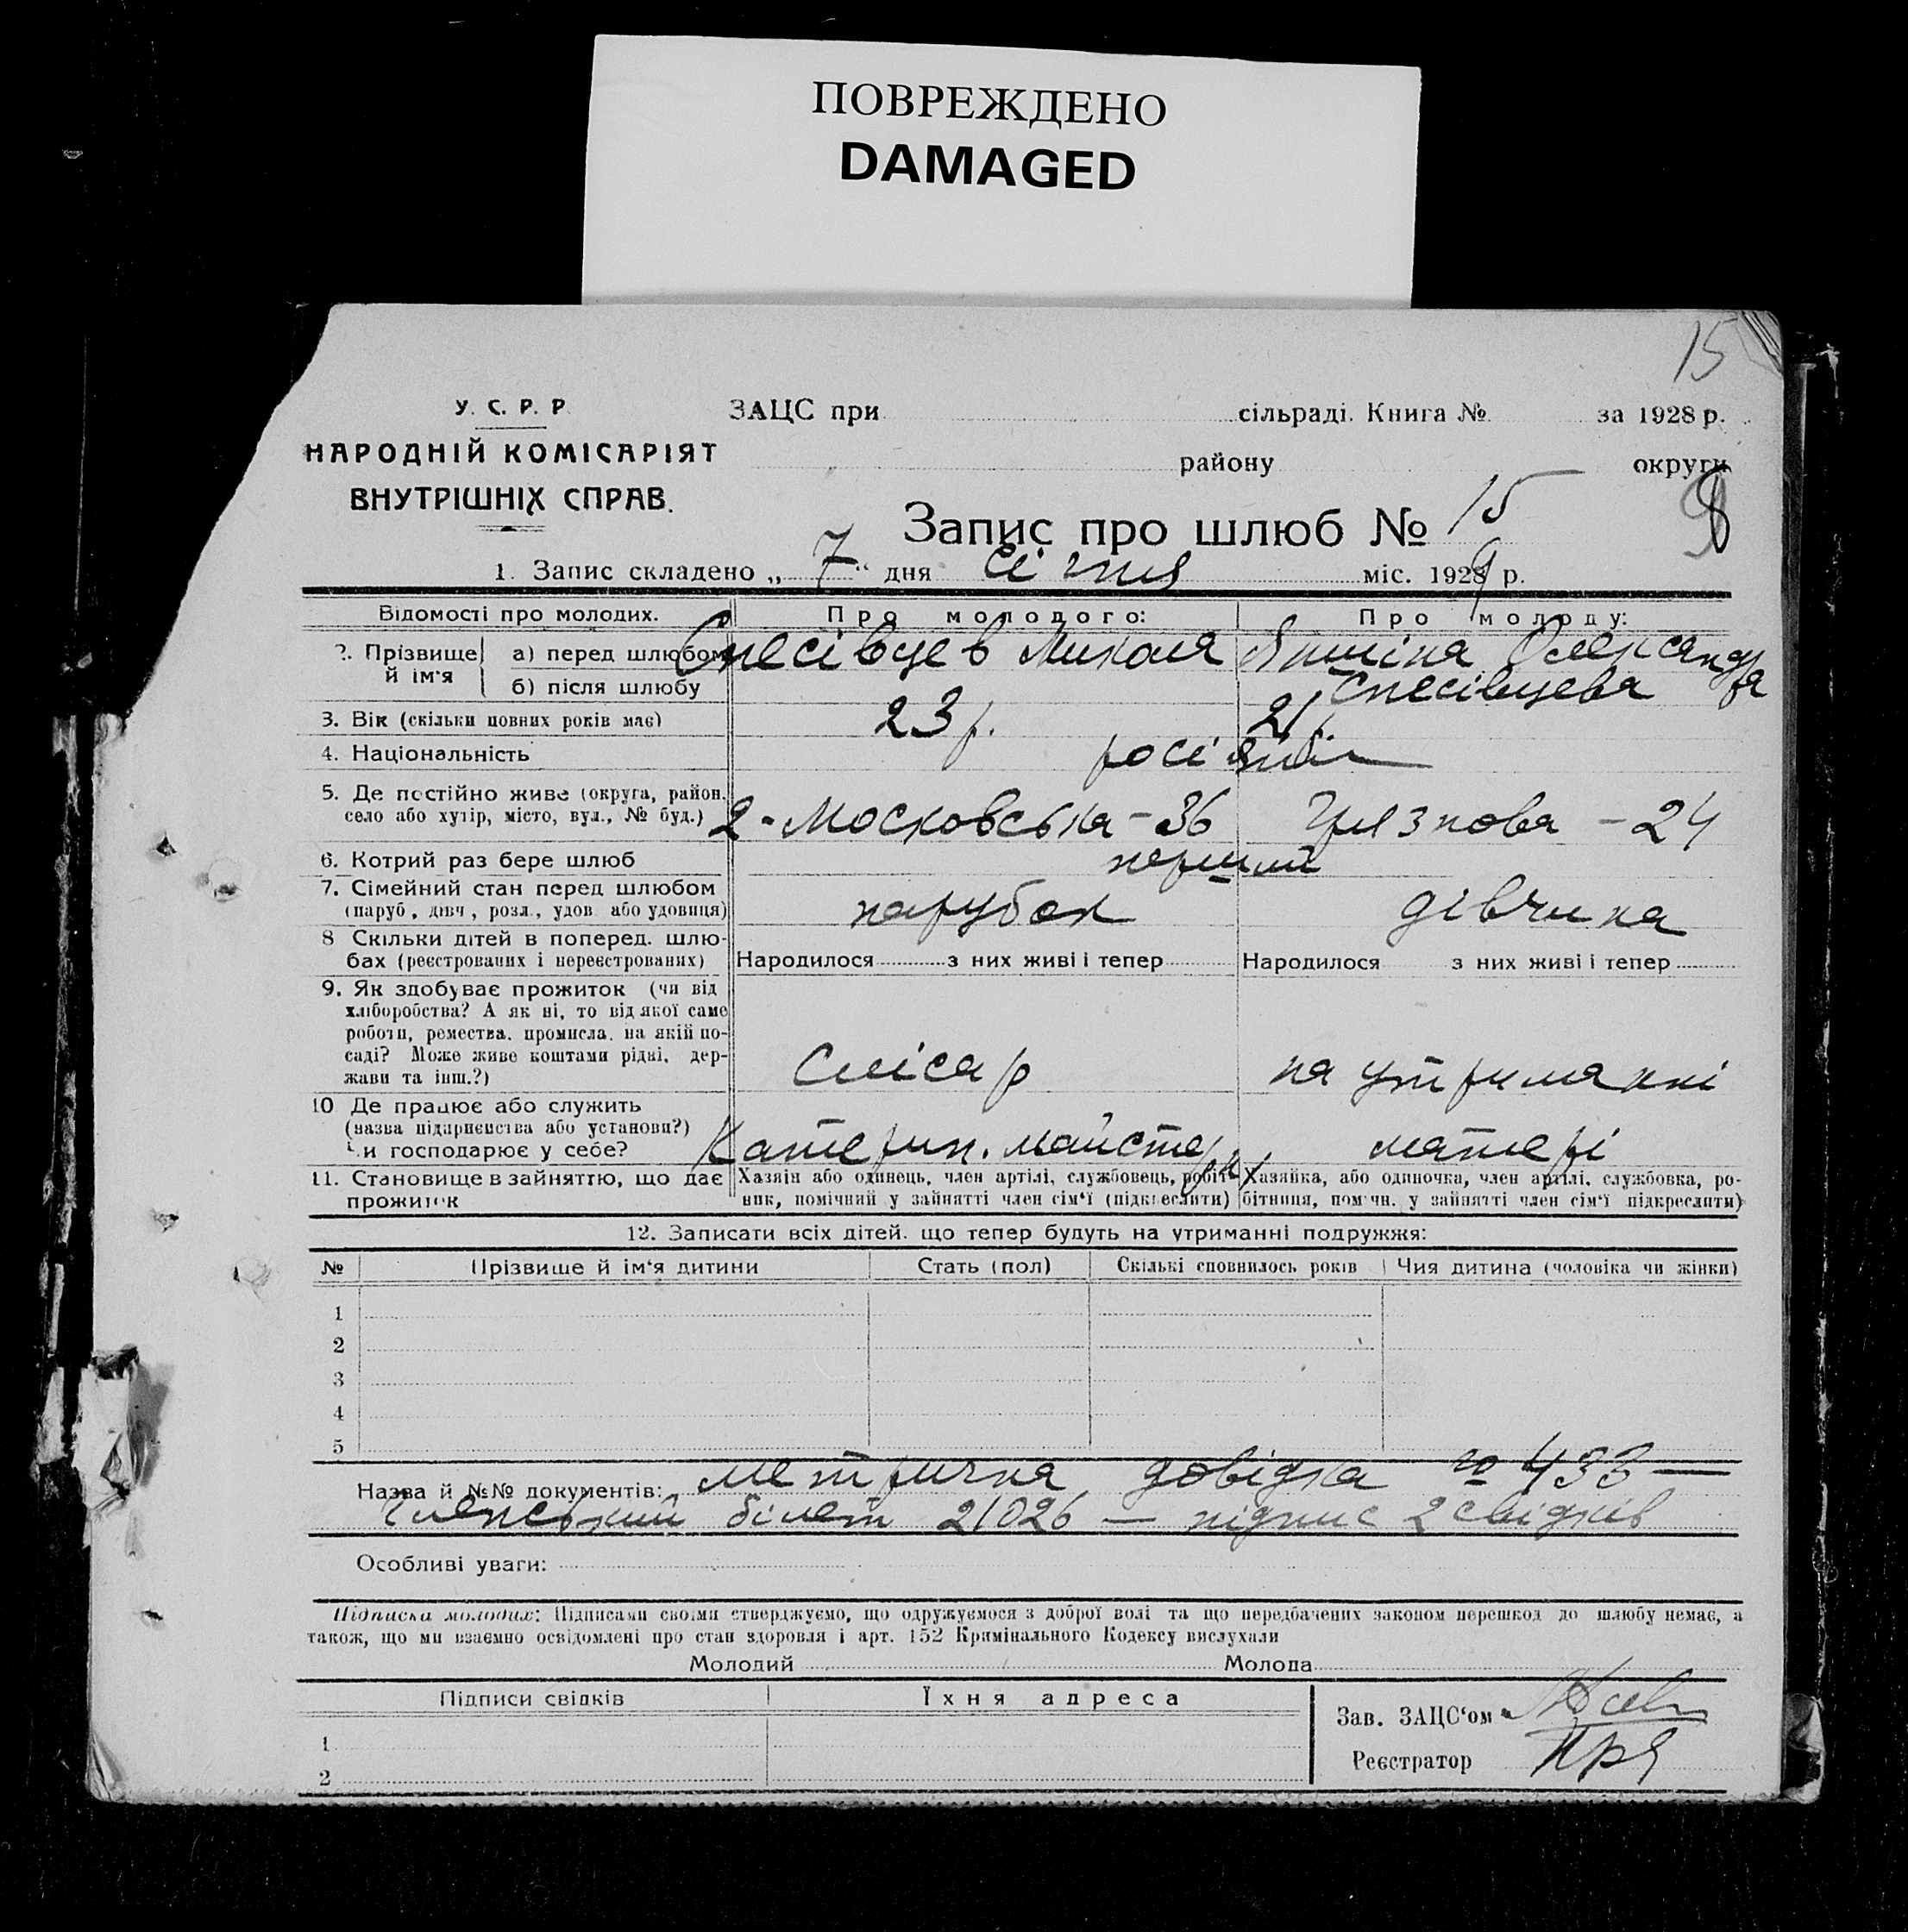 ПОВРЕЖДЕНО
DAMAGED
15
У. С. Р. Р.
НАРОДНІЙ КОМІСАРІЯТ
ВНУТРІШНІХ СПРАВ.
ЗАЦС при сільраді. Книга № за 1928 р.
району округи
8
Запис про шлюб № 15
1. Запис складено „ 7 “ дня січня міс. 1929 р.
Відомості про молодих. Про молодого: Про молоду:
2. Прізвище й ім'я а) перед шлюбом Спесівцев Микола Яшіна Олександра
б) після шлюбу Спесівцева
3. Вік (скільки повних років має) 23 р. 21 р.
4. Національність росіяни
5. Де постійно живе (округа, район,
село або хутір, місто, вул., № буд.) 2-Московська - 36 Грязнова - 24
6. Котрий раз бере шлюб перший
7. Сімейний стан перед шлюбом
(паруб., дівч., розл., удов. або удовиця) парубок дівчина
8 Скільки дітей в поперед. шлю-
бах (реєстрованих і нереєстрованих) Народилося з них живі і тепер Народилося з них живі і тепер
9. Як здобуває прожиток (чи від
хліборобства? А як ні, то від якої саме
роботи, ремества, промисла, на якій по-
саді? Може живе коштами рідні, дер-
жави та інш.?) Слісар на утриманні
10 Де працює або служить
(назва підприємства або установи?)
Чи господарює у себе? Катерин. майстерні матері
11. Становище в зайняттю, що дає Хазяїн або одинець, член артілі, службовець, робіт- Хазяйка, або одиночка, член артілі, службовка, ро-
прожиток ник, помічний у зайнятті член сім'ї (підкреслити) бітниця, помічн. у зайнятті член сім'ї підкреслити)
12. Записати всіх дітей, що тепер будуть на утриманні подружжя:
№ Прізвище й ім'я дитини Стать (пол) Скількі сповнилось років Чия дитина (чоловіка чи жінки)
1
2
3
4
5
Назва й №№ документів: метрична довідка № 433 —
членський білет 21026 — підпис 2 свідків
Особливі уваги:
Підписка молодих: Підписами своїми стверджуємо, що одружуємося з доброї волі та що передбачених законом перешкод до шлюбу немає, а
також, що ми взаємно освідомлені про стан здоровля і арт. 152 Кримінального Кодексу вислухали
Молодий Молода
Підписи свідків Їхня адреса
Зав. ЗАЦС'ом
1
Реєстратор
2